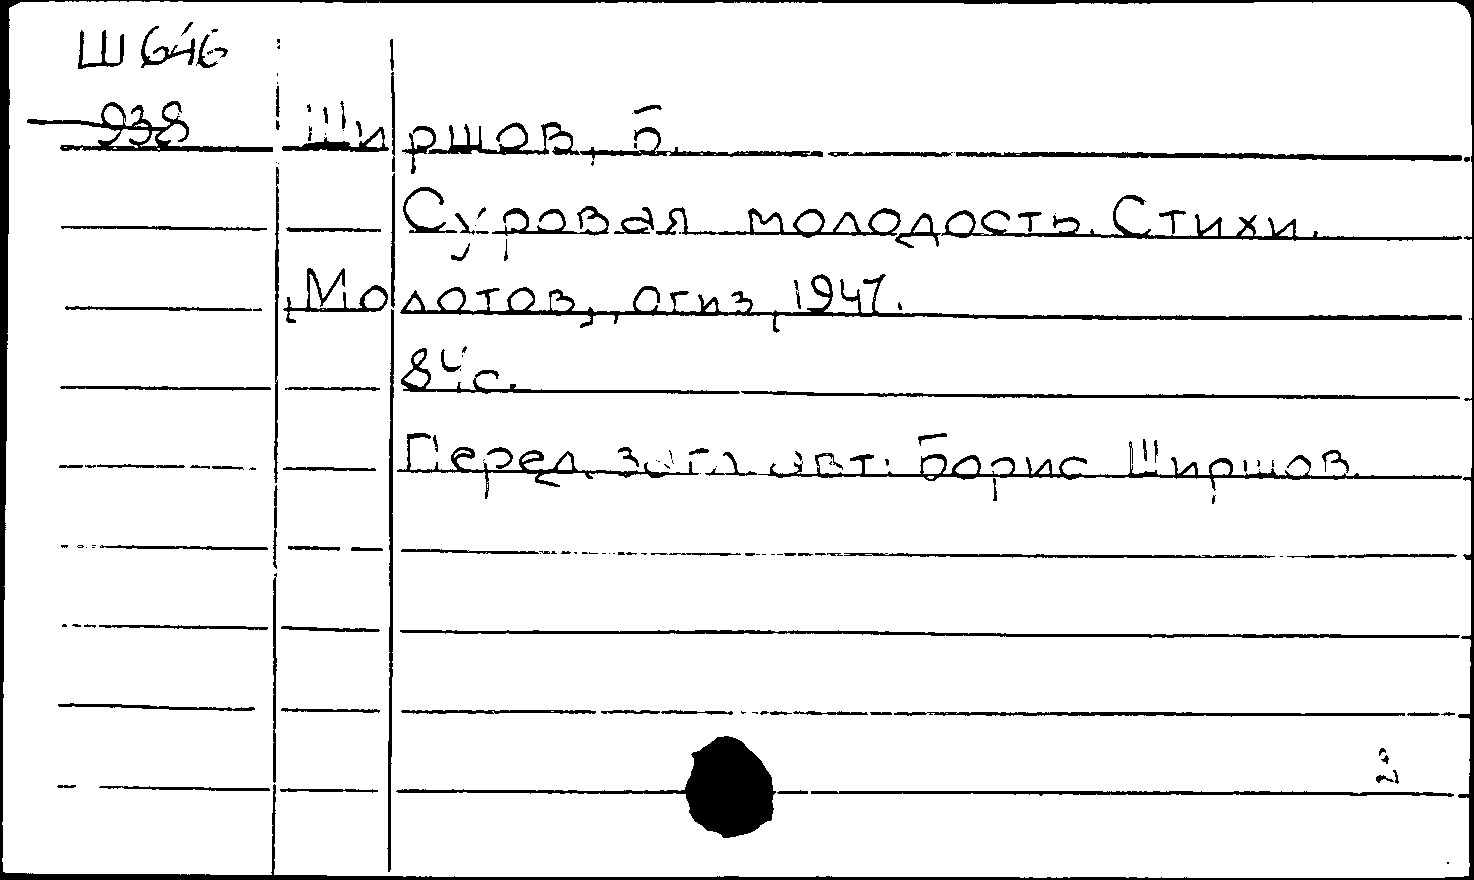 Ш646
938
Ширшов, Б.
Суровая молодость. Стихи.
Молотов, Огиз, 1947.
84 с.
Перед загл. авт: Борис Ширшов.